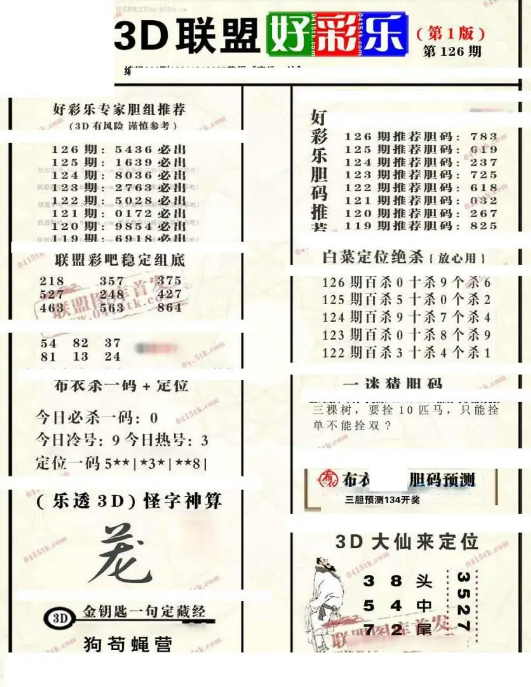 3D联盟好彩乐(第1版)
第126期
好彩乐专家胆组推荐
(3D有风险 谨慎参考)
126期: 5436必出
125期: 1639必出
124期: 8036必出
123期: 2763必出
122期: 5028必出
121期: 0172必出
120期: 9854必出
119期: 6918必出
联盟彩吧稳定组底
218 357 375
527 248 427
463 563 864
54 82 37
81 13 24
布衣杀一码+定位
今日必杀一码: 0
今日冷号: 9 今日热号: 3
定位一码5**|*3*|**8|
(乐透3D)怪字神算
3D 金钥匙一句定藏经
狗苟蝇营
好彩乐胆码推荐
126期推荐胆码: 783
125期推荐胆码: 619
124期推荐胆码: 237
123期推荐胆码: 725
122期推荐胆码: 618
121期推荐胆码: 032
120期推荐胆码: 267
119期推荐胆码: 825
白菜定位绝杀{放心用}
126期百杀0十杀9个杀6
125期百杀5十杀0个杀2
124期百杀9十杀7个杀4
123期百杀0十杀8个杀9
122期百杀3十杀4个杀1
一迷猪胆码
三棵树，要拴10匹马，只能拴
单不能拴双？
布衣 胆码预测
三胆预测134开奖
3D大仙来定位
3 8 头
5 4 中
7 2 尾
3527
联盟图库首发
www.0415tk.com
0415tk.com